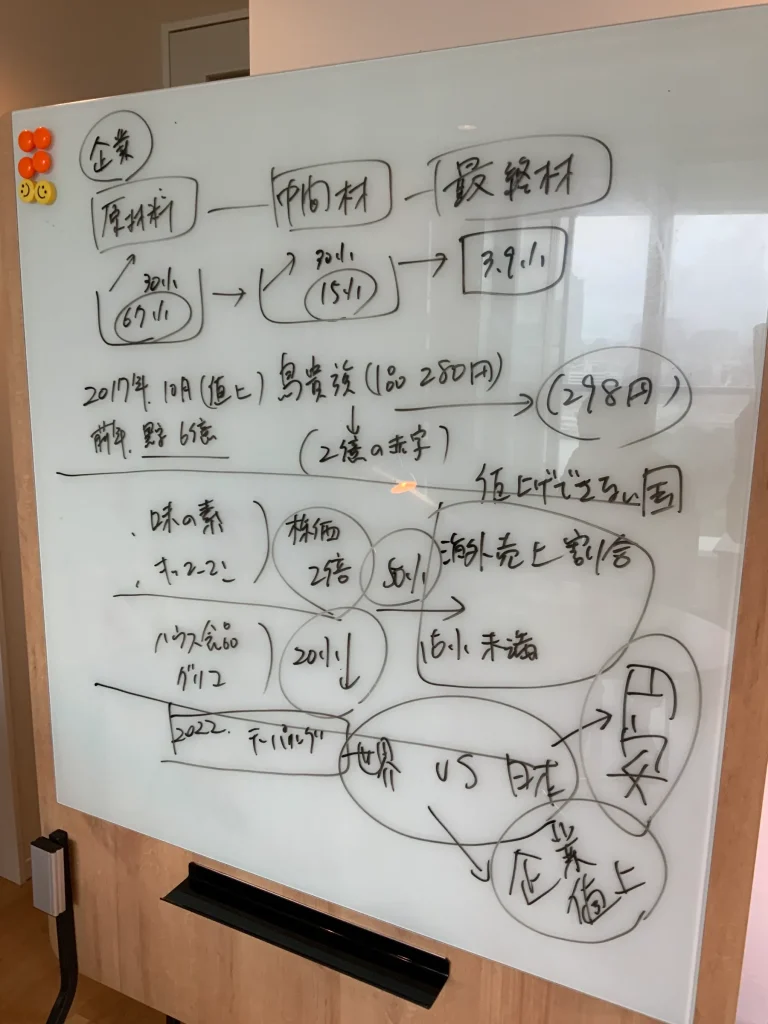 企業
原材料 — 中間材 — 最終材
30% 30%
67% → 15% → 3.9%
2017年.10月(値上) 鳥貴族(1品 280円) → (298円)
前年.黒字6億 (2億の赤字)
値上げできない国
・味の素 株価 海外売上割合
・キッコーマン 2倍 50%
ハウス食品 20% ↓ 15%未満
グリコ
2022. テーパリング 世界 VS 日本 円安
企業
値上